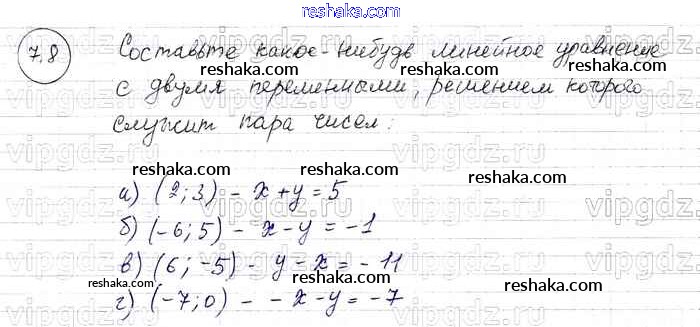 reshaka.com
7.8 Составьте какое-нибудь линейное уравнение
reshaka.com reshaka.com
с двумя переменными, решением которого
reshaka.com
служит пара чисел:
vipgdz.ru
reshaka.com
а) (2; 3) - x + y = 5
reshaka.com reshaka.com
б) (-6; 5) - x - y = -1
reshaka.com
в) (6; -5) - y - x = -11
reshaka.com reshaka.com
г) (-7; 0) - - x - y = -7
reshaka.com